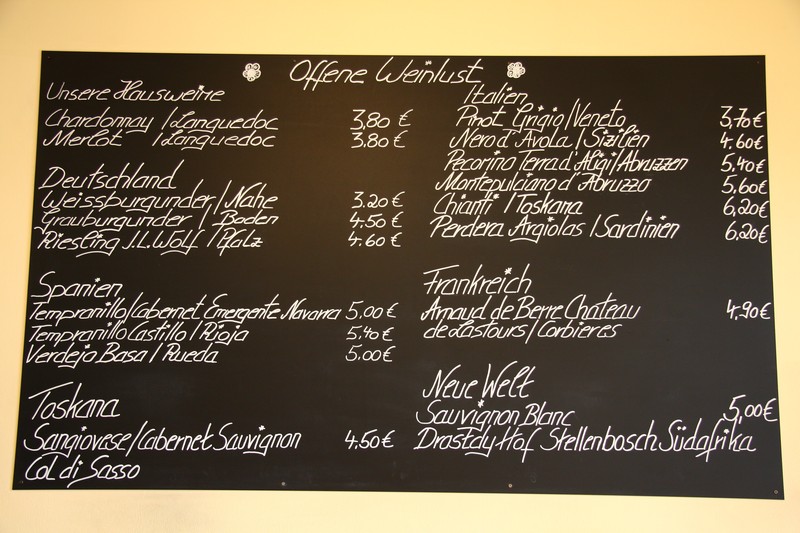 Offene Weinlust
Unsere Hausweine
Chardonnay / Languedoc 3,80 €
Merlot / Languedoc 3,80 €
Deutschland
Weissburgunder / Nahe 3.20 €
Grauburgunder / Boden 4.50 €
Riesling J.L.Wolf / Pfalz 4.60 €
Spanien
Tempranillo/Cabernet Emergente Navarra 5,00 €
Tempranillo Castillo / Rioja 5,40 €
Verdejo Basa / Rueda 5,00 €
Toskana
Sangiovese/Cabernet Sauvignon 4,50 €
Col di Sasso
Italien
Pinot Grigio/Veneto 3,70 €
Nero d'Avola / Sizilien 4.60 €
Pecorino Terra d'Aligi/Abruzzen 5,40 €
Montepulciano d'Abruzzo 5,60 €
Chianti / Toskana 6,20 €
Perdera Argiolas / Sardinien 6,20 €
Frankreich
Arnaud de Berre Chateau 4,90 €
de Lastours / Corbieres
Neue Welt
Sauvignon Blanc 5,00 €
Drostdy Hof Stellenbosch Südafrika